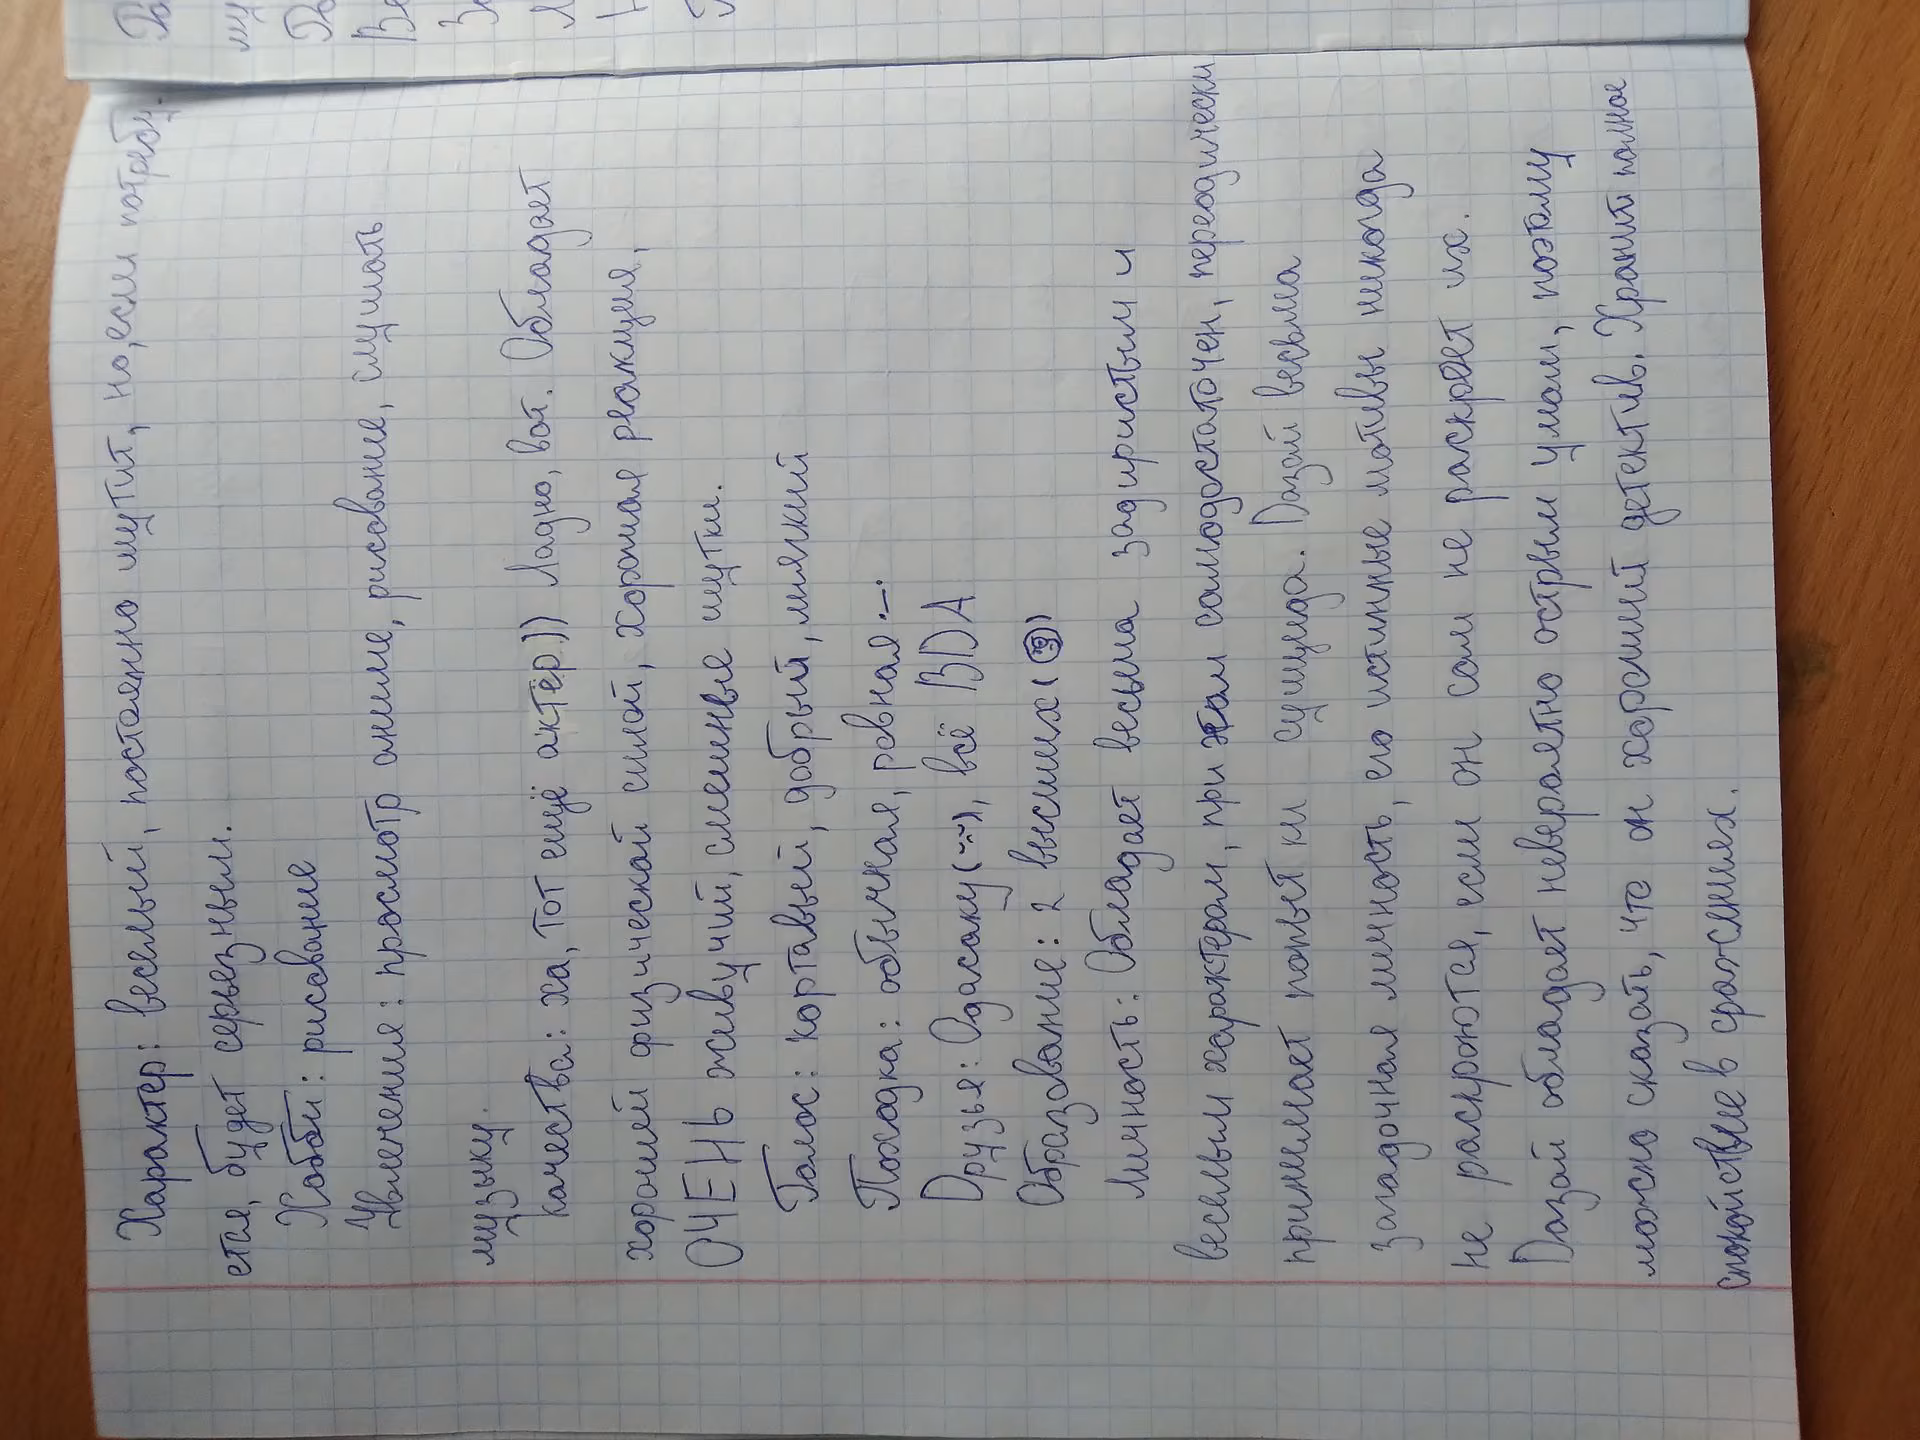 Характер: веселый, постоянно шутит, но, если потребу-
ется, будет серьезным.
Хобби: рисование
Увлечения: просмотр аниме, рисование, слушать
музыку.
качества: ха, тот ещё актёр)) Ладно, вот. Обладает
хорошей физической силой, хорошая реакция,
ОЧЕНЬ живучий, смешные шутки.
Голос: кортавый, добрый, мягкий
Походка: обычная, ровная
Друзья: Одасаку, всё BDA
Образование: 2 высших
Личность: Обладает весьма задиристым и
веселым характером, при этом самодостаточен, переодически
принимает попытки суицида. Дазай весьма
загадочная личность, его истинные мотивы никогда
не раскроются, если он сам не раскроет их.
Dазай обладает невероятно острым умом, поэтому
можно сказать, что он хороший детектив. Хранит полное
спокойствие в сражениях.